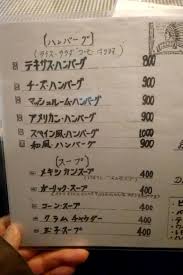 (ハンバーグ)
(ライス・サラダ
テキサス・ハンバーグ 900
チーズ・ハンバーグ 900
マッシュルーム・ハンバーグ 900
アメリカン・ハンバーグ 900
スペイン風・ハンバーグ 1000
和風・ハンバーグ 900
(スープ)
メキシカンスープ 400
ガーリック・スープ 400
コーン・スープ 400
クラムチャウダー 400
玉子スープ 400